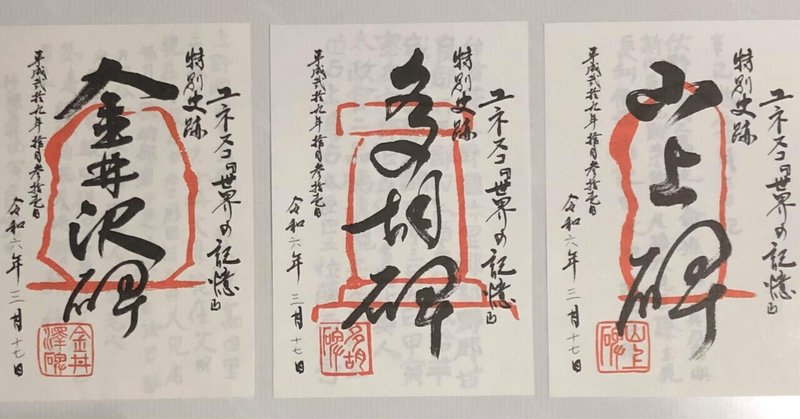 ユネスコ「世界の記憶」
特別史跡
山上碑
平成弐拾九年拾月参拾壱日
令和六年三月十七日
山上碑
ユネスコ「世界の記憶」
特別史跡
多胡碑
平成弐拾九年拾月参拾壱日
令和六年三月十七日
多胡碑
ユネスコ「世界の記憶」
特別史跡
金井沢碑
平成弐拾九年拾月参拾壱日
令和六年三月十七日
金井澤碑